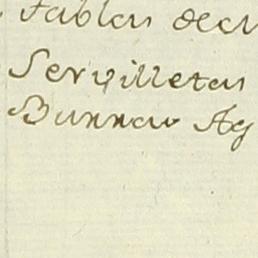 Tablas de
Servilletas
Burras Ag